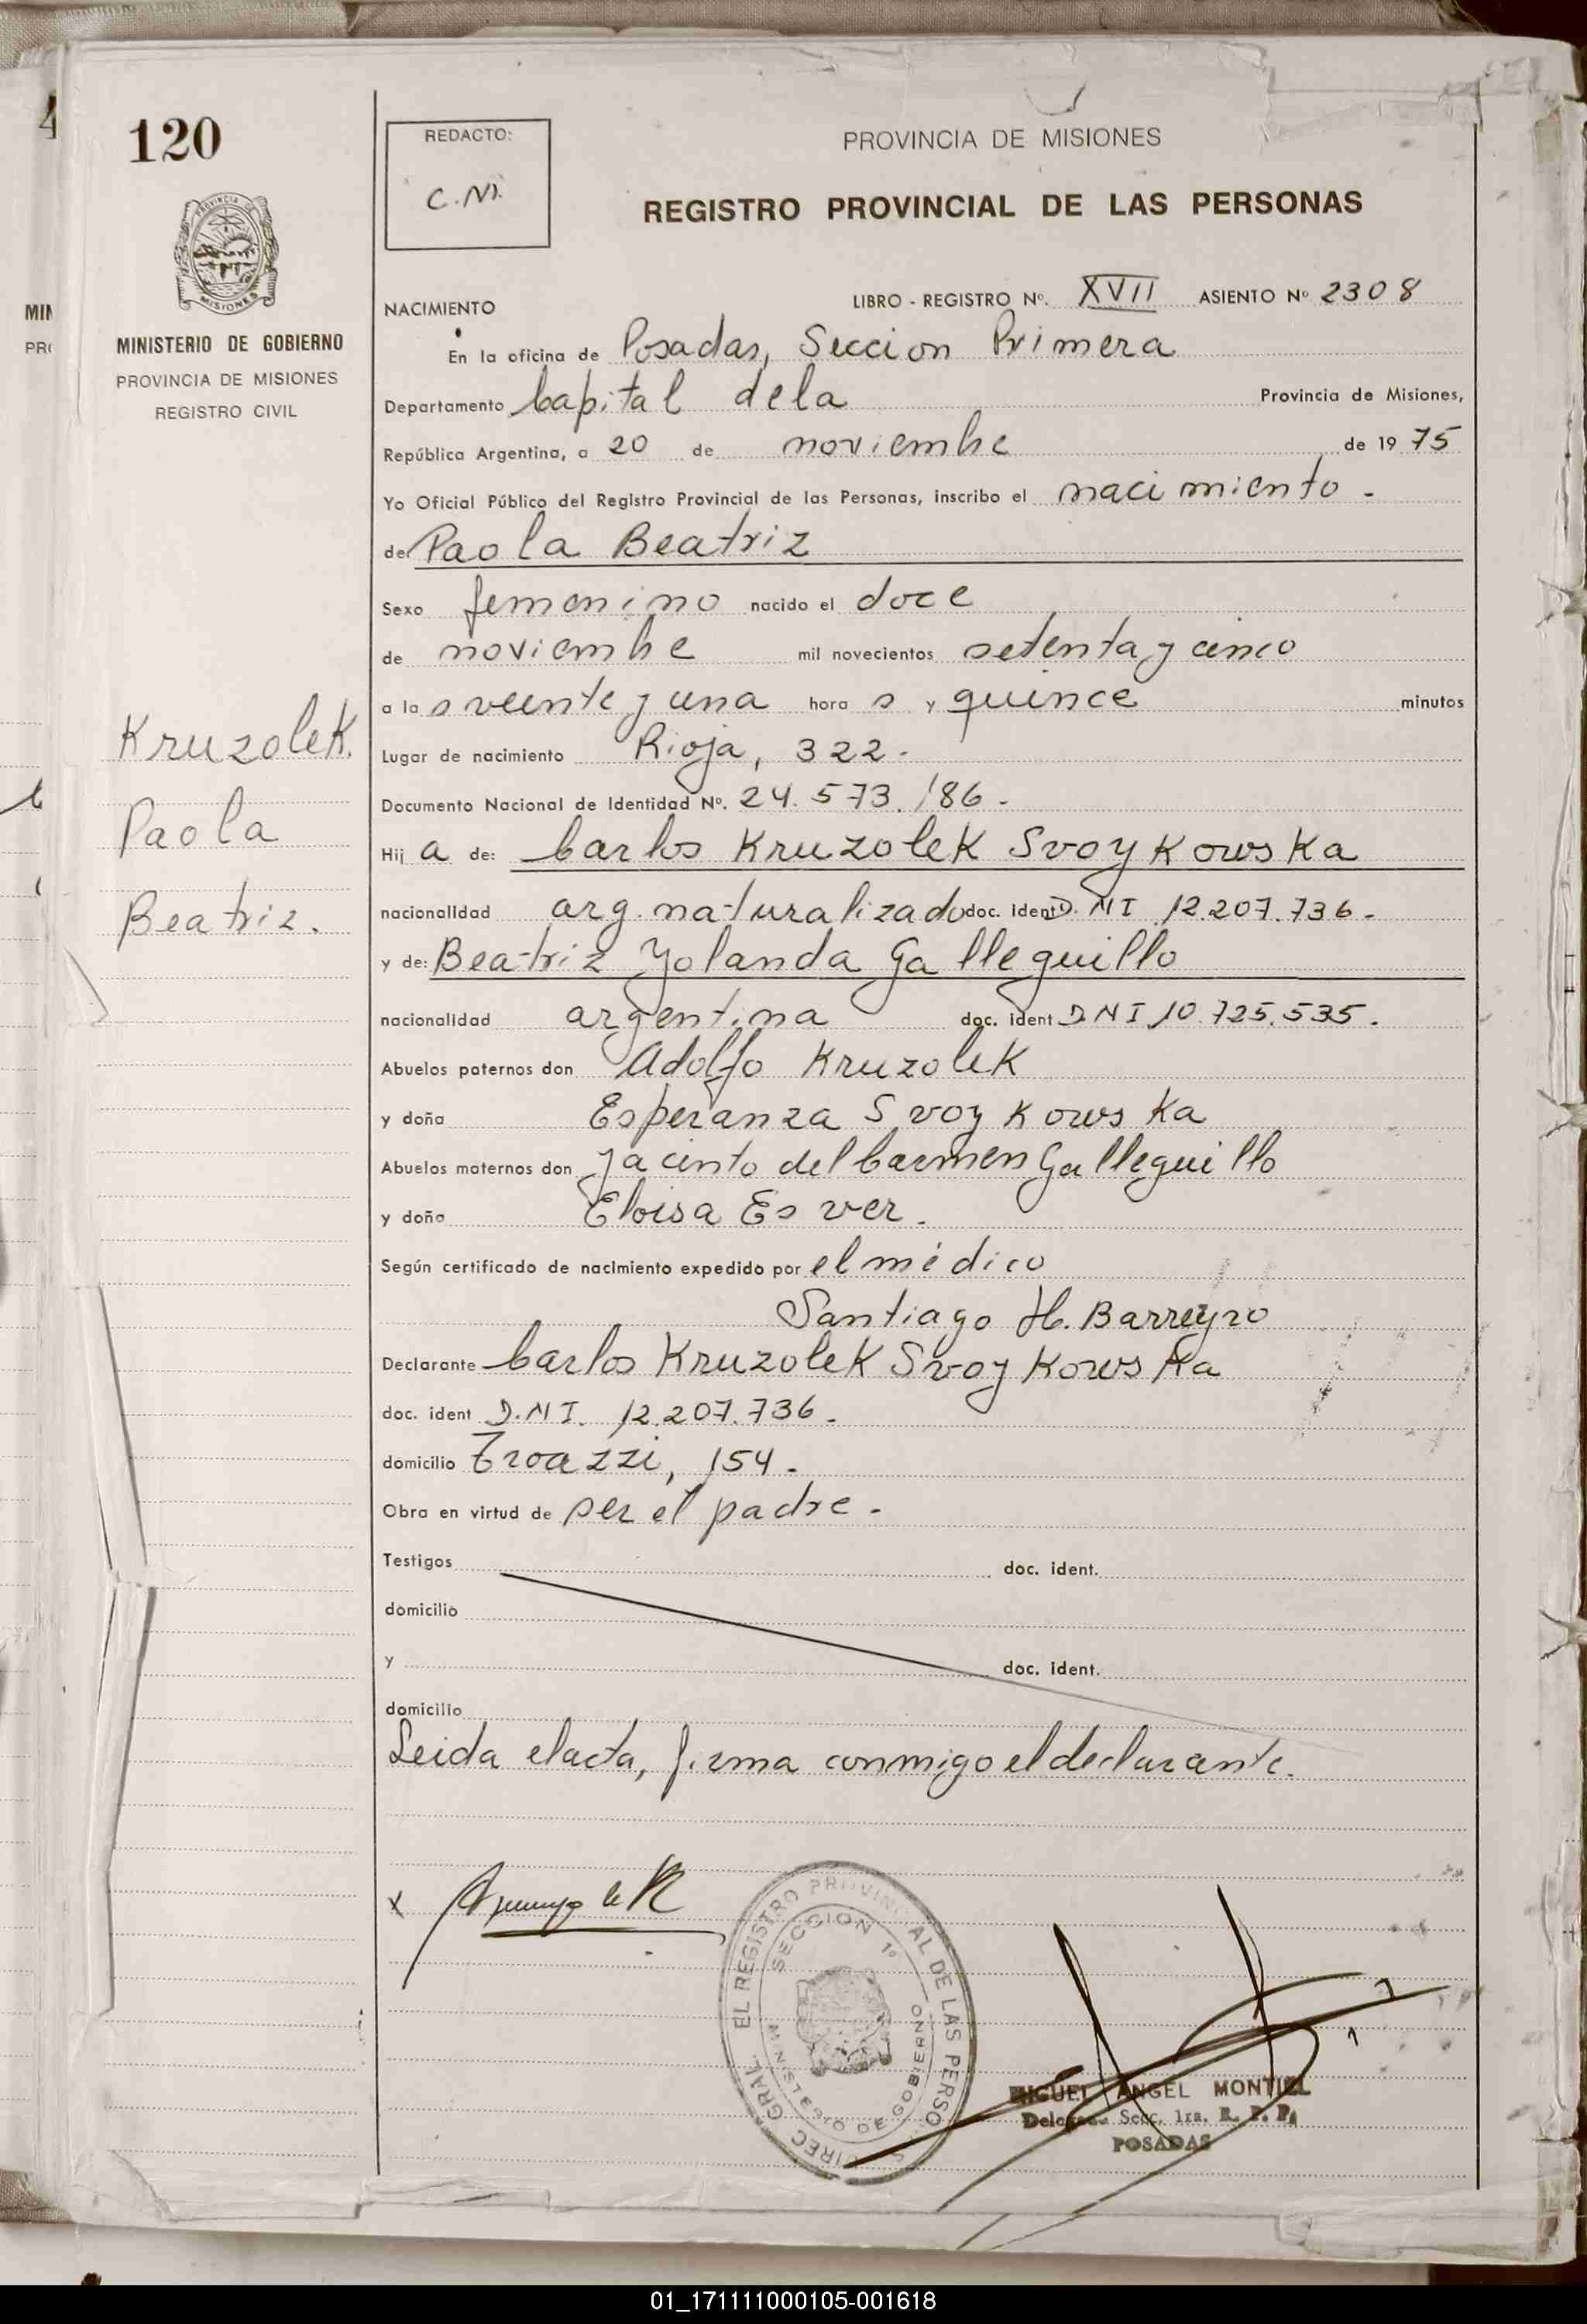 120
PROVINCIA DE MISIONES
MINISTERIO DE GOBIERNO
PROVINCIA DE MISIONES
REGISTRO CIVIL
Kruzolek.
Paola
Beatriz.
REDACTO:
PROVINCIA DE MISIONES
REGISTRO PROVINCIAL DE LAS PERSONAS
NACIMIENTO LIBRO - REGISTRO Nº. XVII ASIENTO Nº 2308
En la oficina de Posadas, Seccion Primera
Departamento Capital dela Provincia de Misiones,
República Argentina, a 20 de noviembre de 19 75
Yo Oficial Público del Registro Provincial de las Personas, inscribo el nacimiento -
de Paola Beatriz
Sexo femenino nacido el doce
de noviembre mil novecientos setenta y cinco
a la s veinte y una hora s y quince minutos
Lugar de nacimiento Rioja, 322-
Documento Nacional de Identidad Nº. 24.573.186-
Hij a de: Carlos Kruzolek Svoykowska
nacionalidad arg. naturalizado doc. ident D.NI 12.207.736-
y de: Beatriz Yolanda Galleguillo
nacionalidad argentina doc. ident DNI 10.725.535.
Abuelos paternos don Adolfo Kruzolek
y doña Esperanza Svoykowska
Abuelos maternos don Jacinto del Carmen Galleguillo
y doña Eloisa Esver.
Según certificado de nacimiento expedido por el médico
Santiago H. Barreyro
Declarante Carlos Kruzolek Svoykowska
doc. ident D.NI. 12.207.736-
domicilio Troazzi, 154-
Obra en virtud de ser el padre-
Testigos doc. ident.
domicilio
y doc. ident.
domicilio
Leida elacta, firma conmigo el declarante.
DIREC GRAL EL REGISTRO PROVINCIAL DE LAS PERSO
SECCION 1º
MINISTERIO DE GOBIERNO
MIGUEL ANGEL MONTIEL
Delegado Secc. 1ra. R. P. P.
POSADAS
01_171111000105-001618